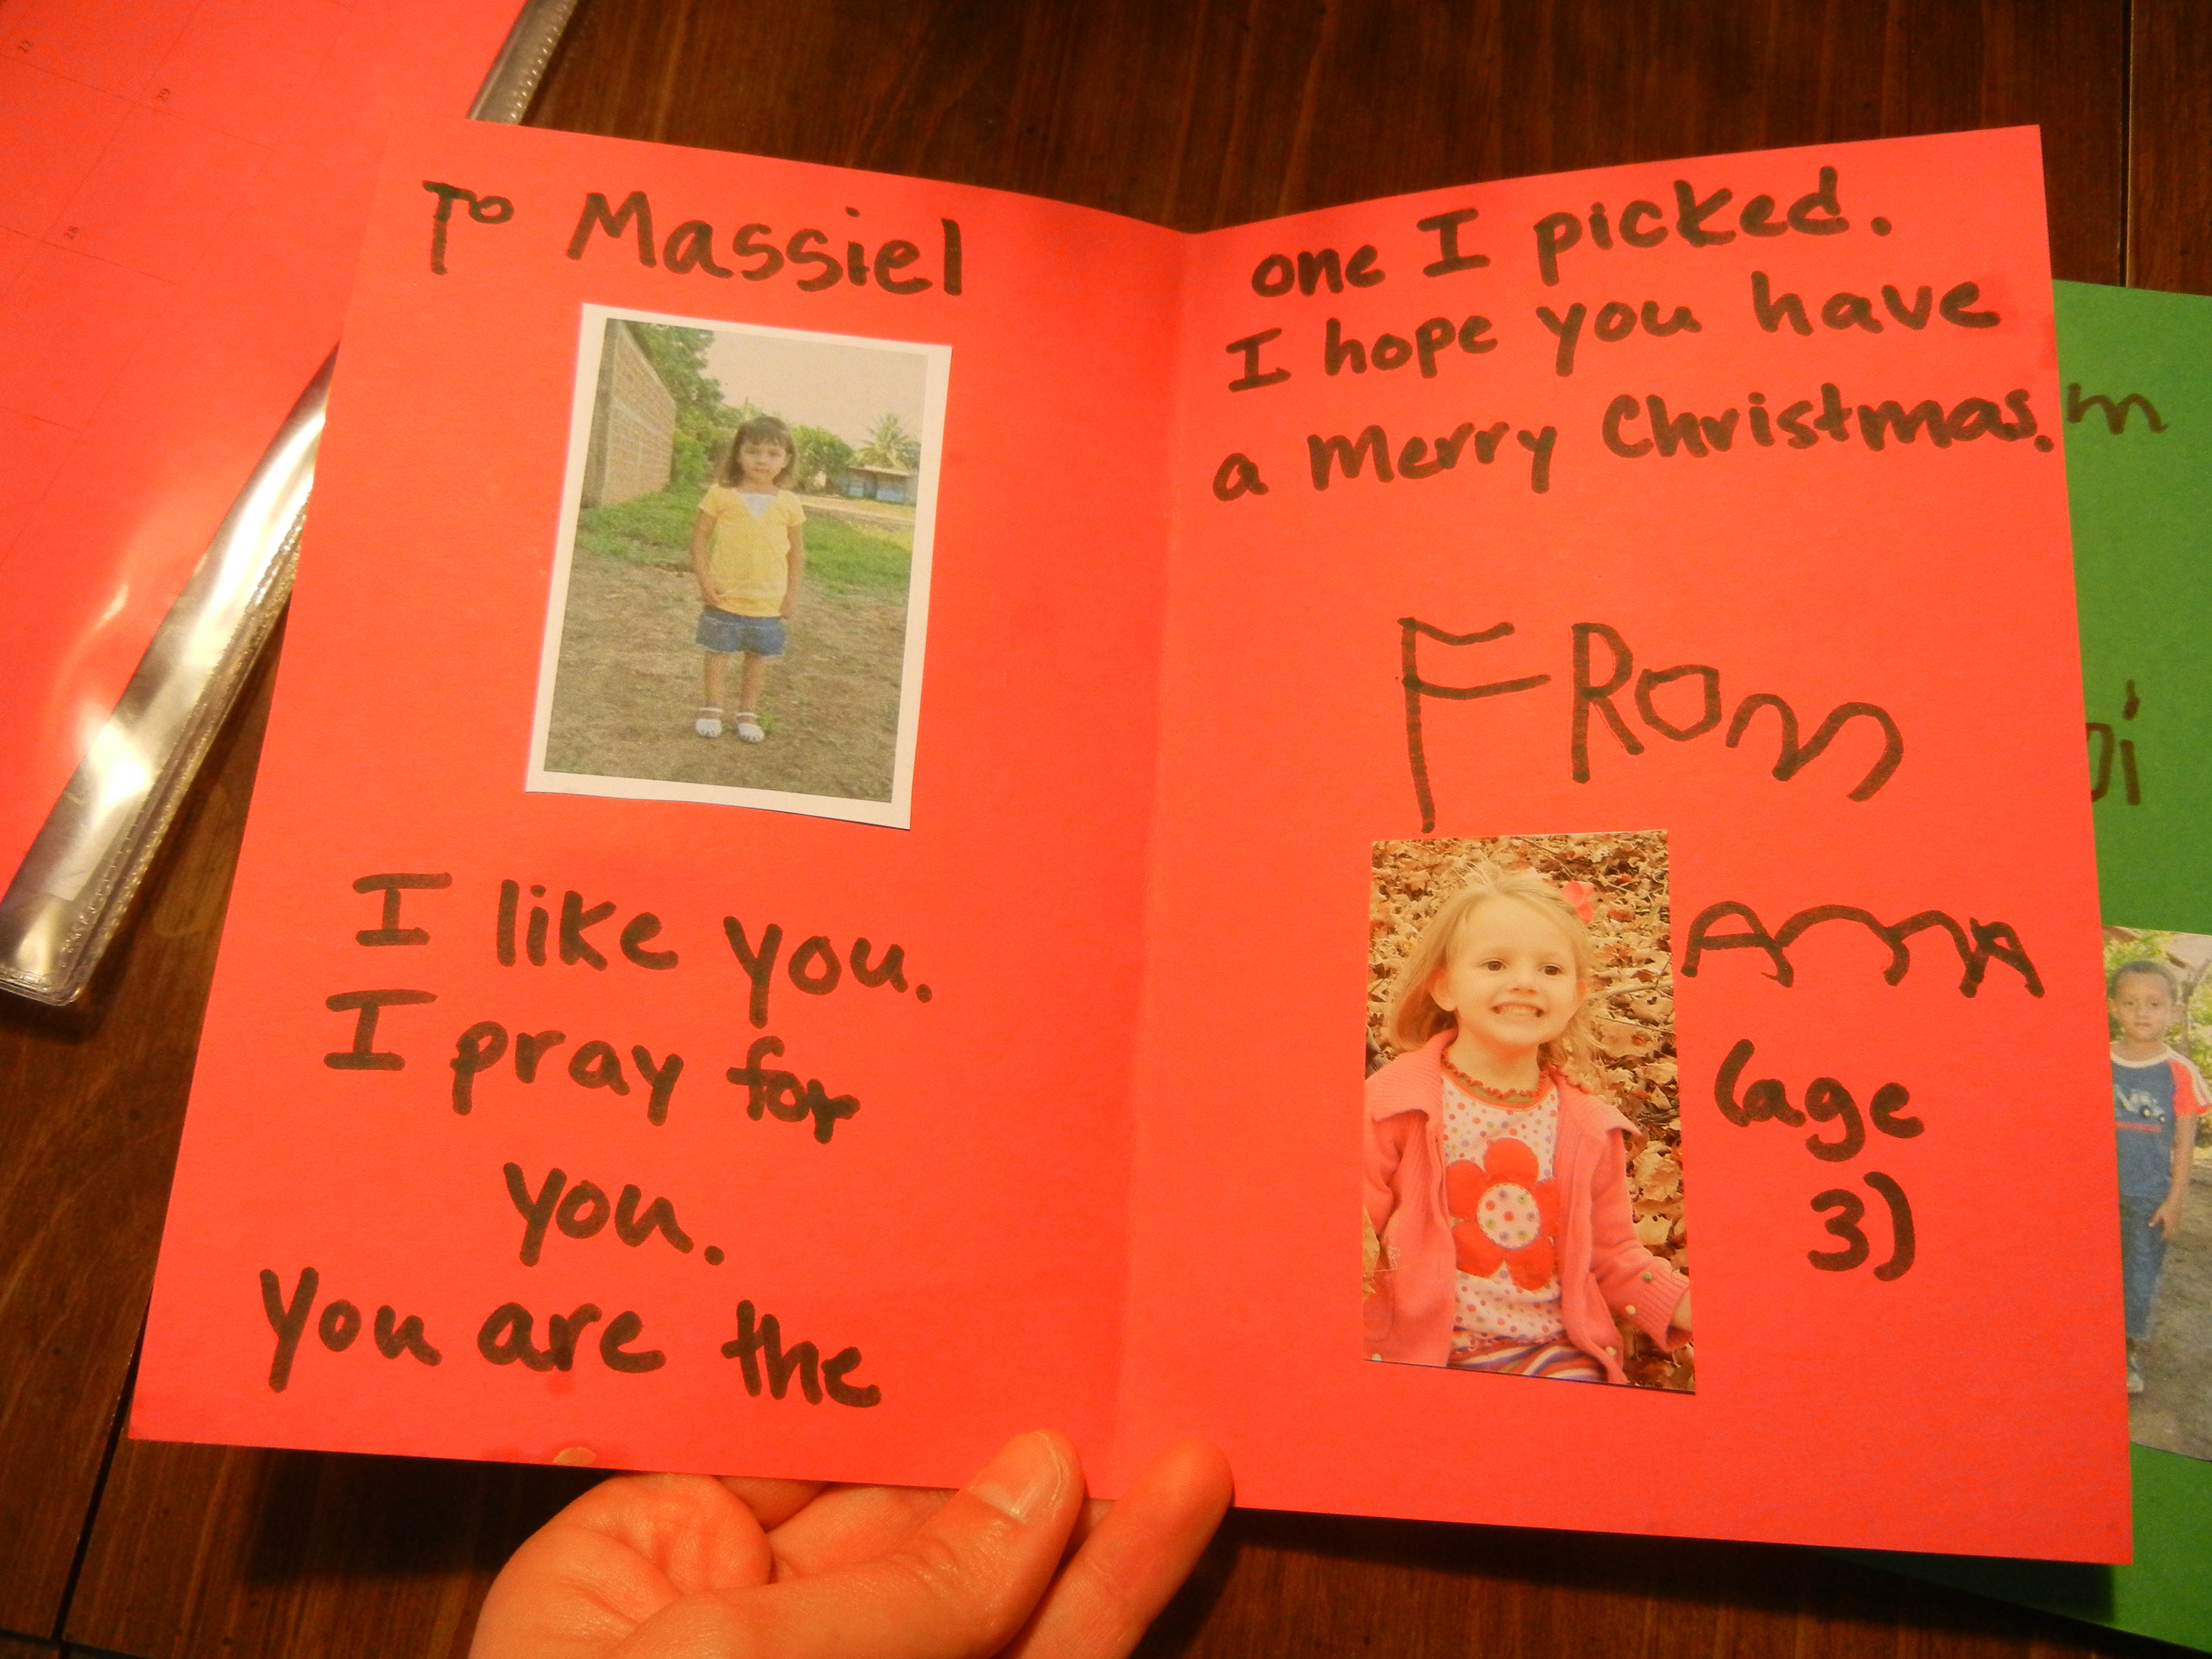 To Massiel
I like you.
I pray for
you.
You are the
one I picked.
I hope you have
a Merry Christmas.
FROM
ANNA
(age
3)
28
29